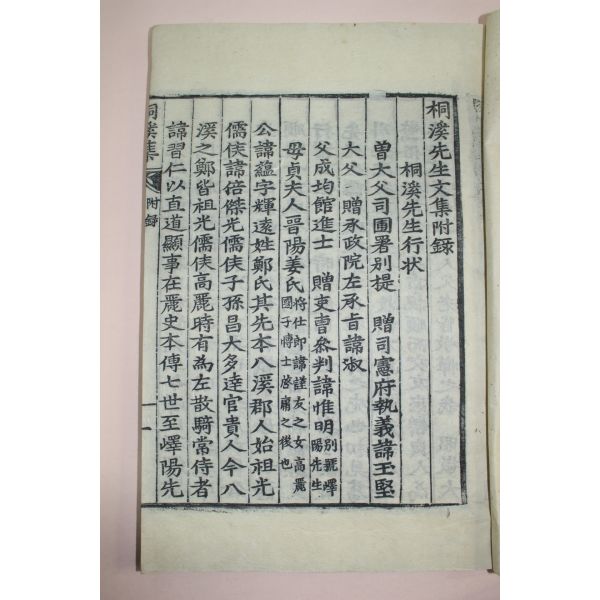 桐溪先生文集附録
桐溪先生行状
曽大父司圃署别提 贈司憲府執義諱玉堅
大父 贈承政院左承旨諱淑
父成均館進士 贈吏曹參判諱惟明别號嶧陽先生
母貞夫人晋陽姜氏將仕郎諱謹友之女高麗國子博士啓庸之後也
公諱蘊字輝遠姓鄭氏其先本八溪郡人始祖光
儒侠諱倍傑光儒侠子孫昌大多逹官貴人今八
溪之鄭皆祖光儒侠高麗時有為左散騎常侍者
諱習仁以直道顯事在麗史本傳七世至嶧陽先
桐溪集 附録 一